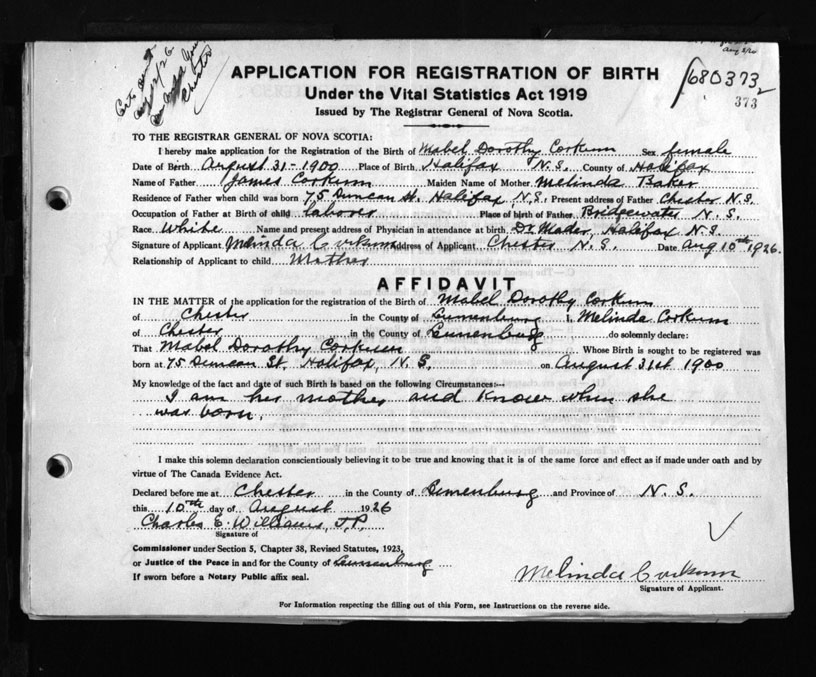 Aug 5/26
Chester
APPLICATION FOR REGISTRATION OF BIRTH
680373
Under the Vital Statistics Act 1919
2
373
Issued by The Registrar General of Nova Scotia.
TO THE REGISTRAR GENERAL OF NOVA SCOTIA:
I hereby make application for the Registration of the Birth of Mabel Dorothy Corkum Sex female
Date of Birth August 31-1900 Place of Birth Halifax N.S. County of Halifax
Name of Father James Corkum Maiden Name of Mother Melinda Baker
Residence of Father when child was born 75 Duncan St. Halifax N.S. Present address of Father Chester N.S.
Occupation of Father at Birth of child laborer Place of birth of Father Bridgewater N.S.
Race White Name and present address of Physician in attendance at birth Dr Mader, Halifax N.S.
Signature of Applicant Melinda Corkum Address of Applicant Chester N.S. Date Aug 10th 1926.
Relationship of Applicant to child Mother
AFFIDAVIT
IN THE MATTER of the application for the registration of the Birth of Mabel Dorothy Corkum
of Chester in the County of Lunenburg I, Melinda Corkum
of Chester in the County of Lunenburg do solemnly declare:
That Mabel Dorothy Corkum Whose Birth is sought to be registered was
born at 75 Duncan St. Halifax, N.S. on August 31st 1900
My knowledge of the fact and date of such Birth is based on the following Circumstances:—
I am her mother and know when she
was born.
I make this solemn declaration conscientiously believing it to be true and knowing that it is of the same force and effect as if made under oath and by
virtue of The Canada Evidence Act.
Declared before me at Chester in the County of Lunenburg and Province of N.S.
this 10th day of August 1926
Charles E. Williams, J.P.
Signature of
Commissioner under Section 5, Chapter 38, Revised Statutes, 1923,
or Justice of the Peace in and for the County of Lunenburg
If sworn before a Notary Public affix seal.
Melinda Corkum
Signature of Applicant.
For Information respecting the filling out of this Form, see Instructions on the reverse side.